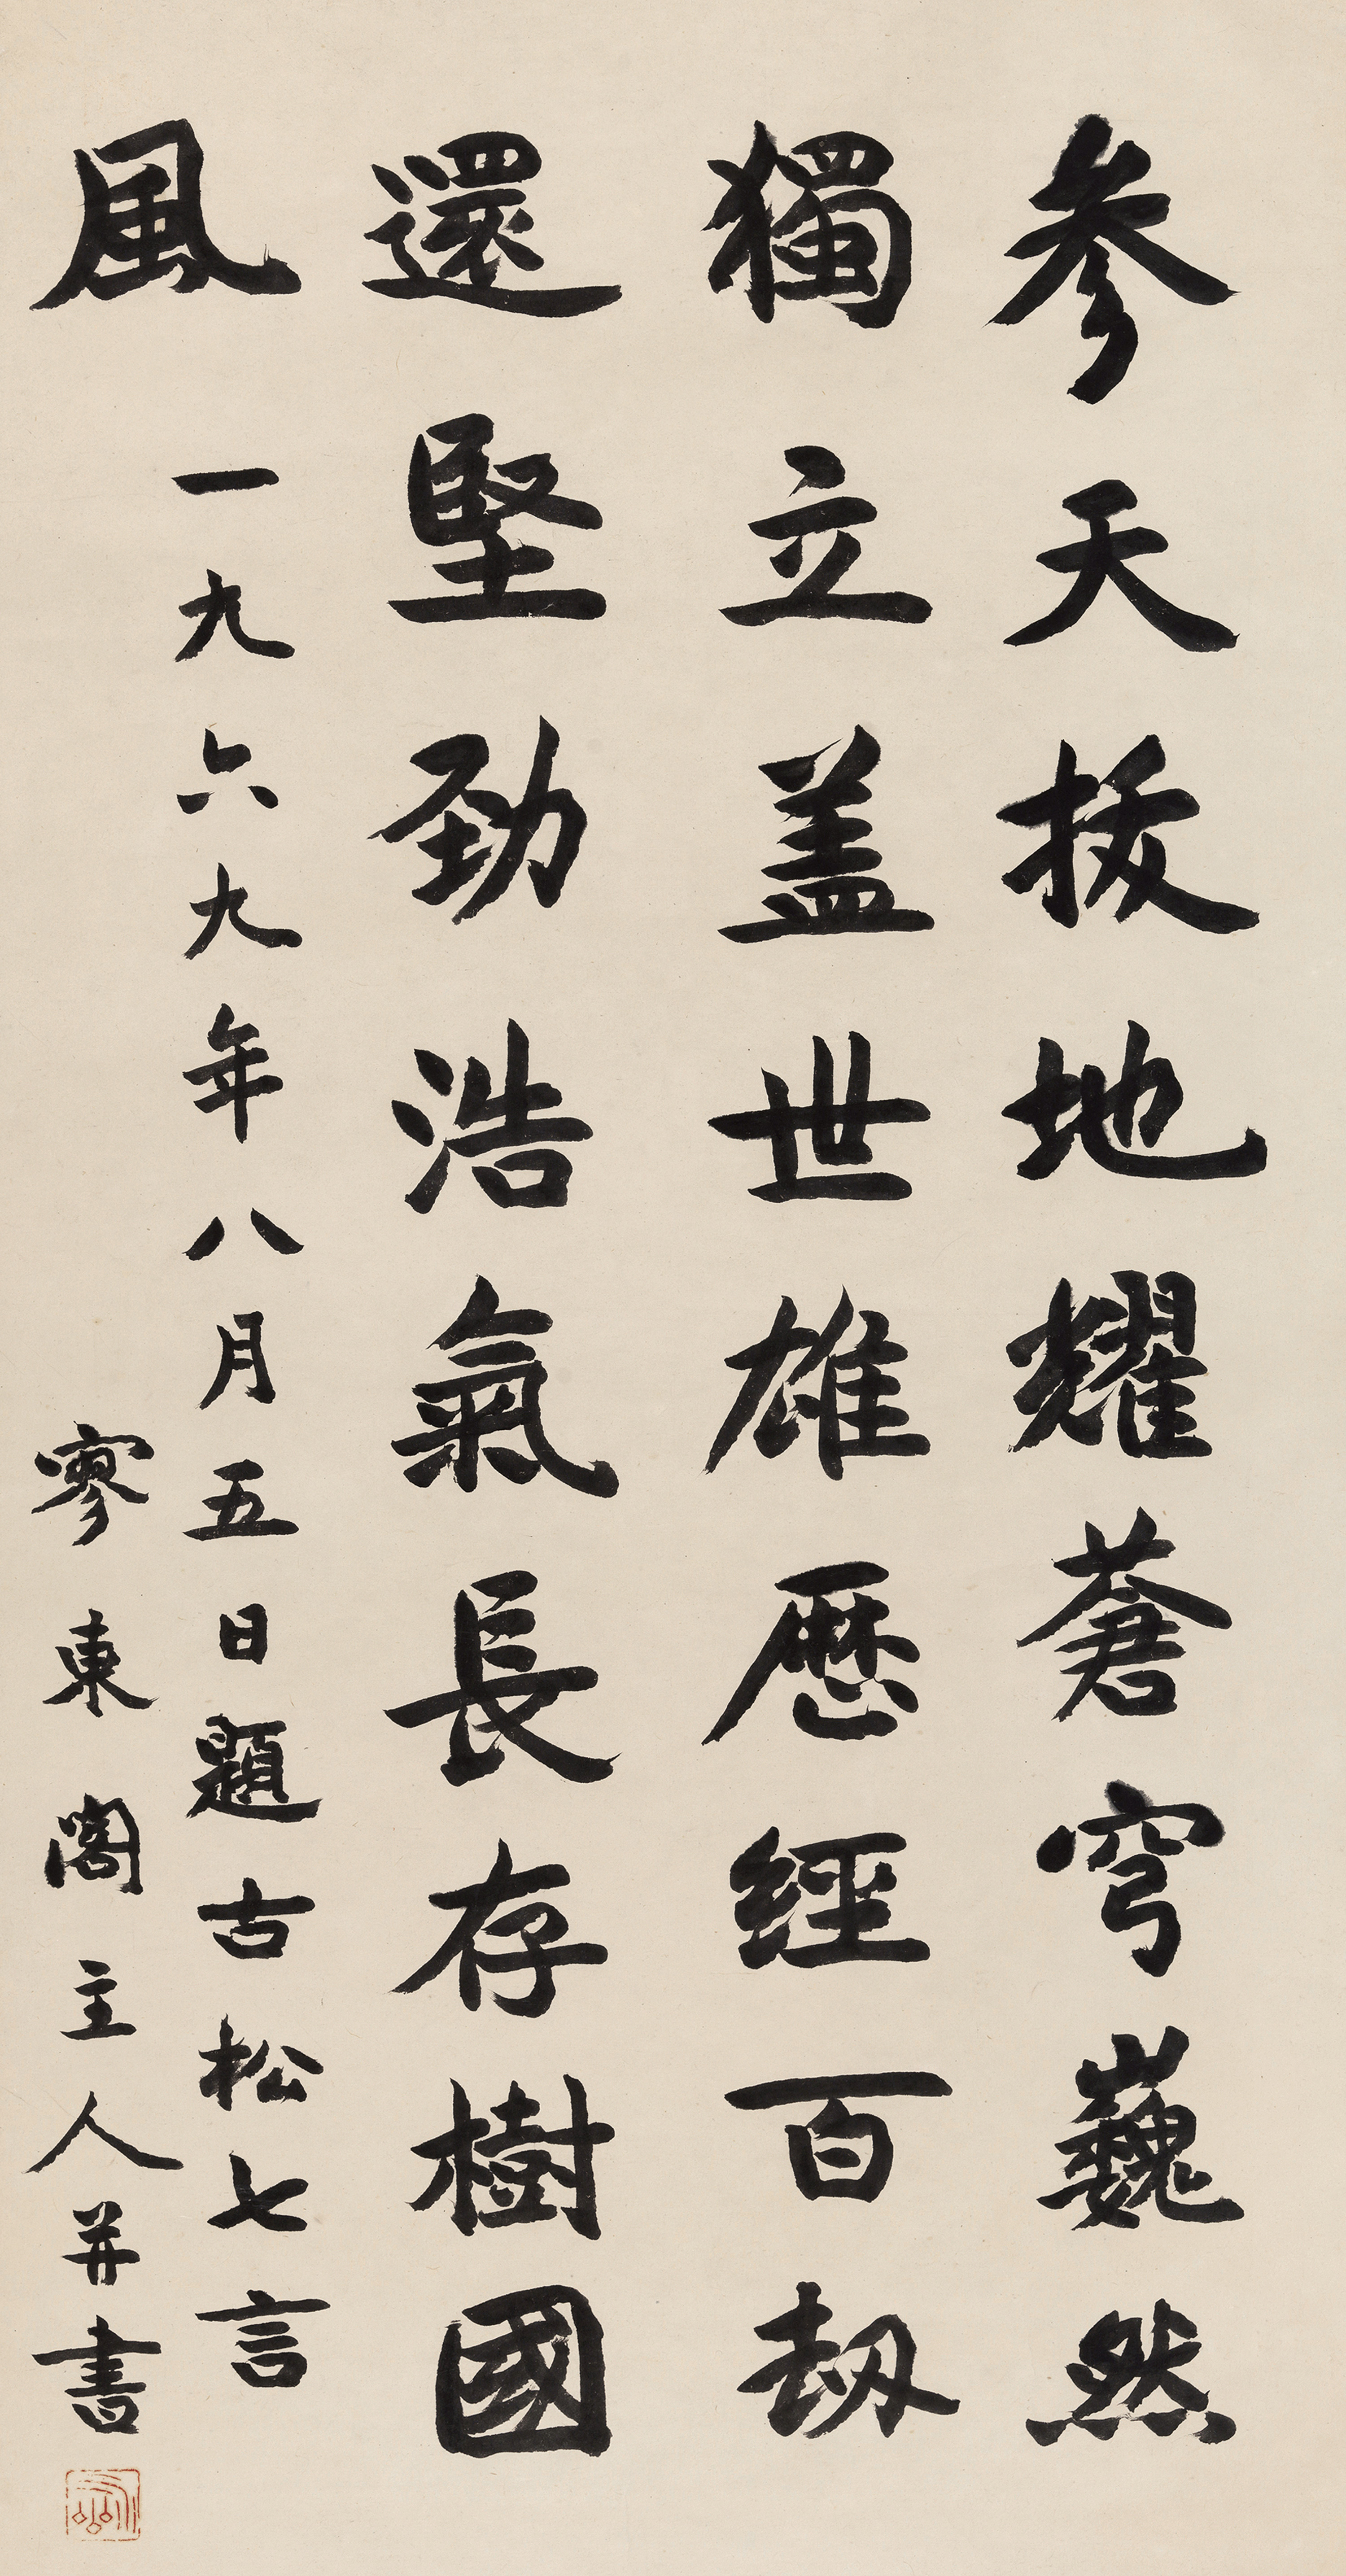 參天拔地耀蒼穹巍然
獨立蓋世雄歷經百劫
還堅勁浩氣長存樹國
風
一九六九年八月五日題古松七言
寥東閣主人并書